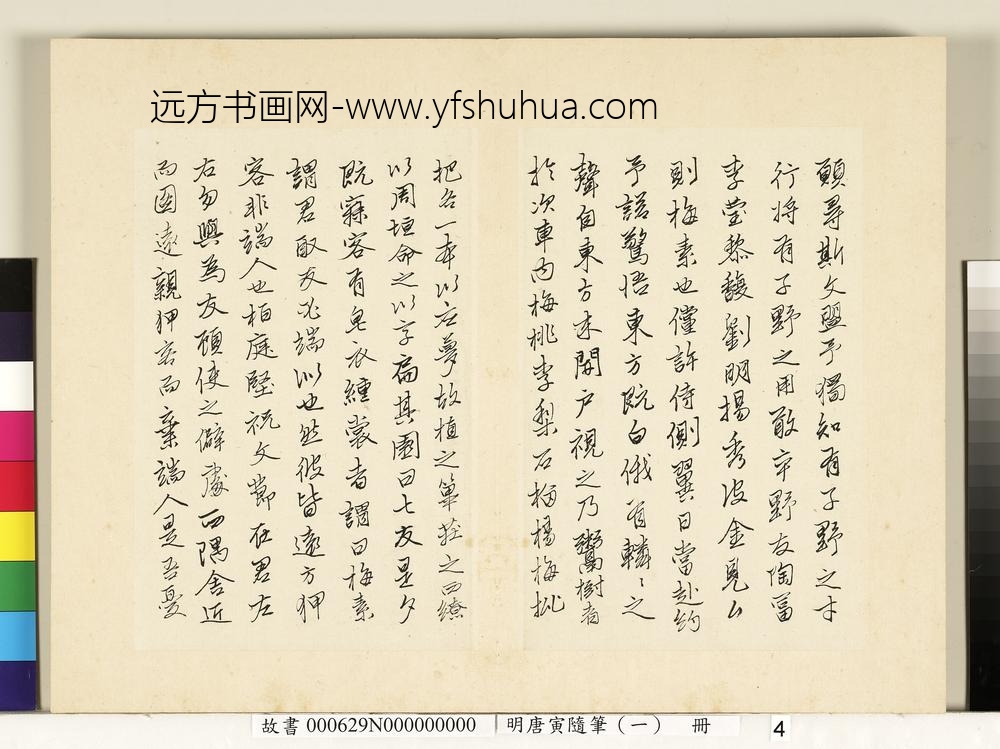 远方书画网-www.yfshuhua.com
願尋斯文盟予獨知有子野之才
行將有子野之用敢率野友陶富
李瑩黎馥劉明揚秀波金見山
則梅素也儻許侍側翼日當赴約
予諾驚悟東方既白俄有轔轔之
聲自東方來開戶視之乃鬻樹者
於次車內梅桃李梨石梅楊梅
把各一本以应夢故植之草莊之西繚
以周垣命之以字扁其園曰七友是夕
既寐客有皂衣纁裳者謂曰梅素
謂君取友必端似也然彼皆遠方狎
客非端人也柏庭堅祝文節在君左
右勿與為友顧使之僻處西隅舍近
而圖遠親狎客而棄端人是吾憂
故書 000629N000000000 明唐寅隨筆（一） 冊 4